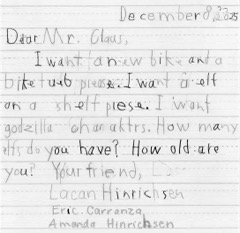 December 8, 2025
Dear Mr. Claus,
I want a new bike and a
bike tueb please. I want a elf
on a shelf plese. I want
godzilla charaktrs. How many
elfs do you have? How old are
you? Your friend,
Lacan Hinrichsen
Eric Carranza
Amanda Hinrichsen